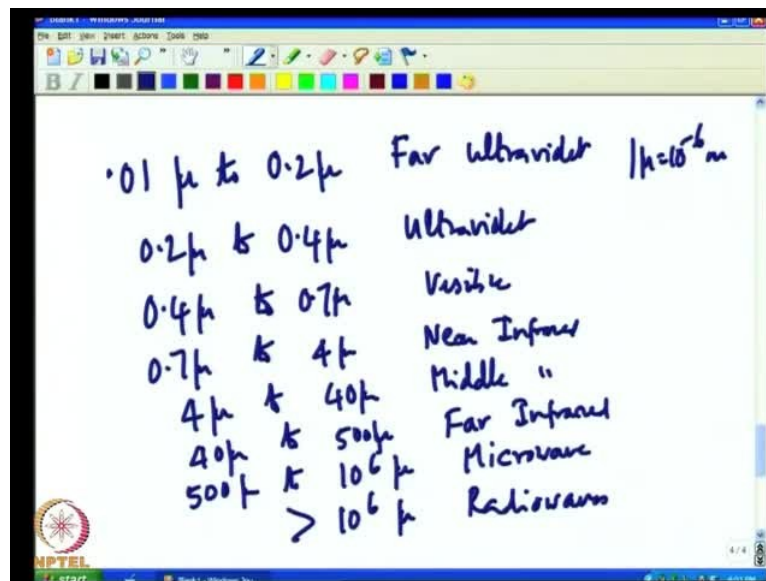 Blank1 - Windows Journal
File Edit View Insert Actions Tools Help
B I
.01 μ to 0.2μ Far Ultraviolet 1μ=10⁻⁶m
0.2μ to 0.4μ Ultraviolet
0.4μ to 0.7μ Visible
0.7μ to 4μ Near Infrared
4μ to 40μ Middle "
40μ to 500μ Far Infrared
500μ to 10⁶ μ Microwave
> 10⁶ μ Radiowaves
4/4
NPTEL
start Blank1 - Windows Jou...